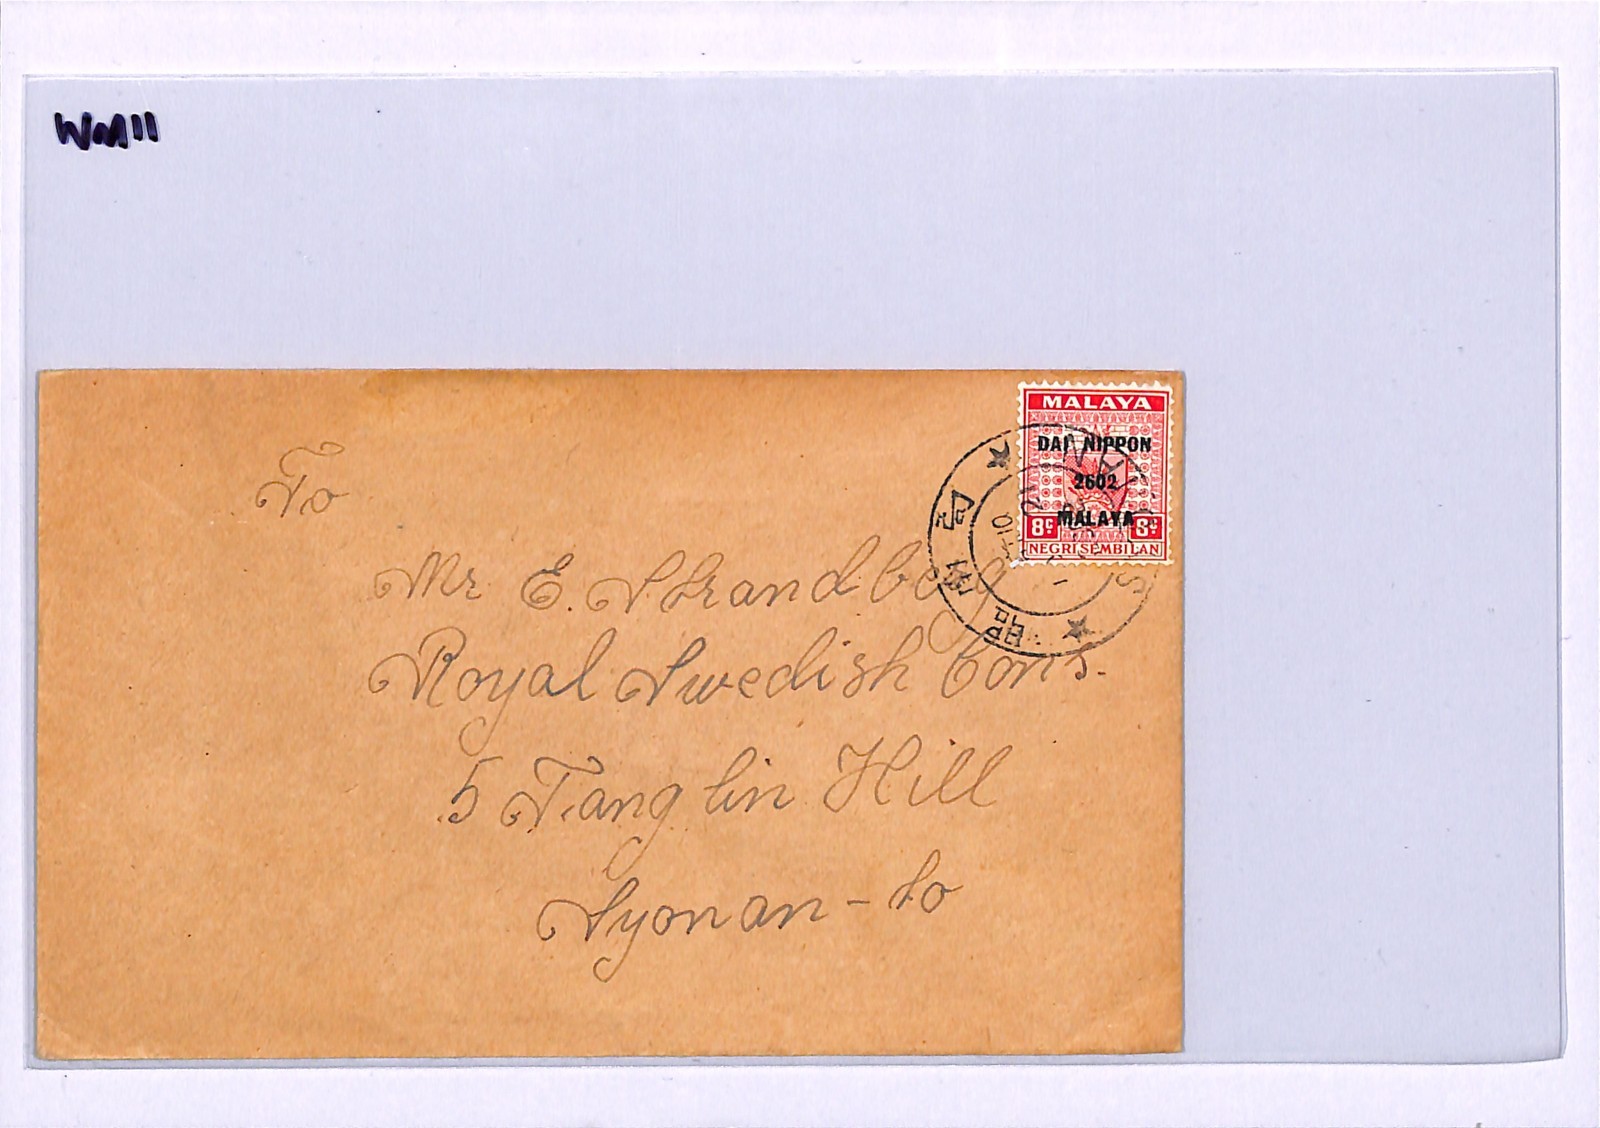 WM11
MALAYA
DAI NIPPON
2602
MALAYA
8c 8c
NEGRI SEMBILAN
昭南
To
Mr E. Strandberg
Royal Swedish Cons.
5 Tanglin Hill
Syonan-to